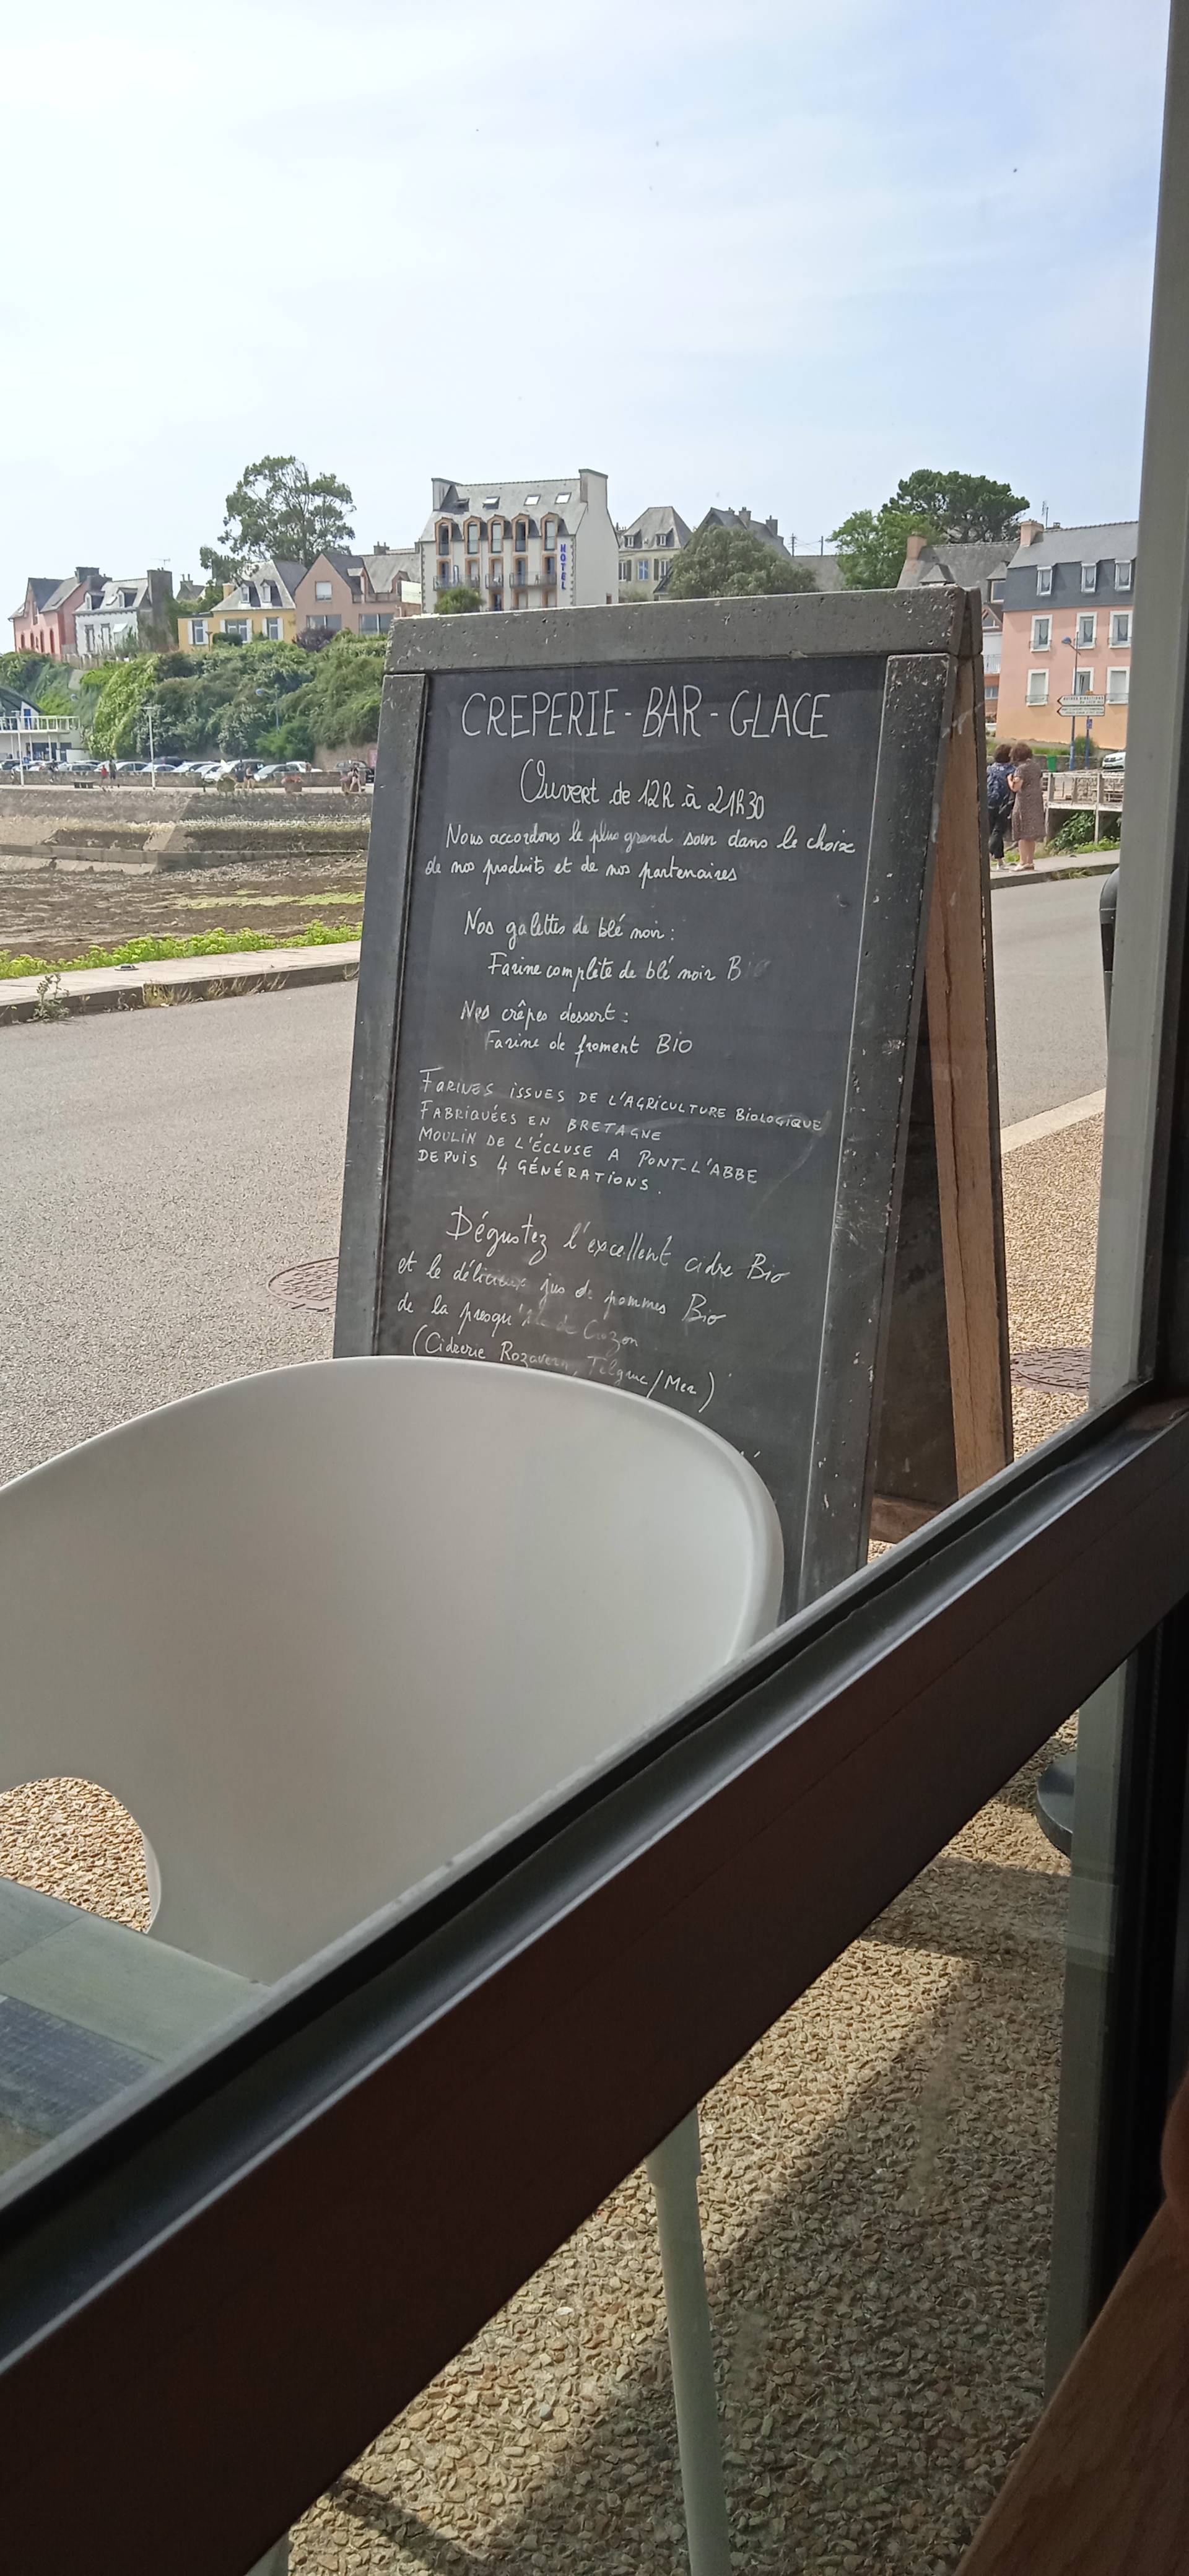 HOTEL
CREPERIE - BAR - GLACE
Ouvert de 12h à 21h30
Nous accordons le plus grand soin dans le choix
de nos produits et de nos partenaires
Nos galettes de blé noir :
Farine complète de blé noir Bio
Nos crêpes dessert :
Farine de froment BIO
FARINES ISSUES DE L'AGRICULTURE BIOLOGIQUE
FABRIQUÉES EN BRETAGNE
MOULIN DE L'ÉCLUSE A PONT-L'ABBE
DEPUIS 4 GÉNÉRATIONS.
Dégustez l'excellent cidre Bio
et le délicieux jus de pommes Bio
de la presqu'île de Crozon
(Cidrerie Rozavern, Telgruc/Mer)